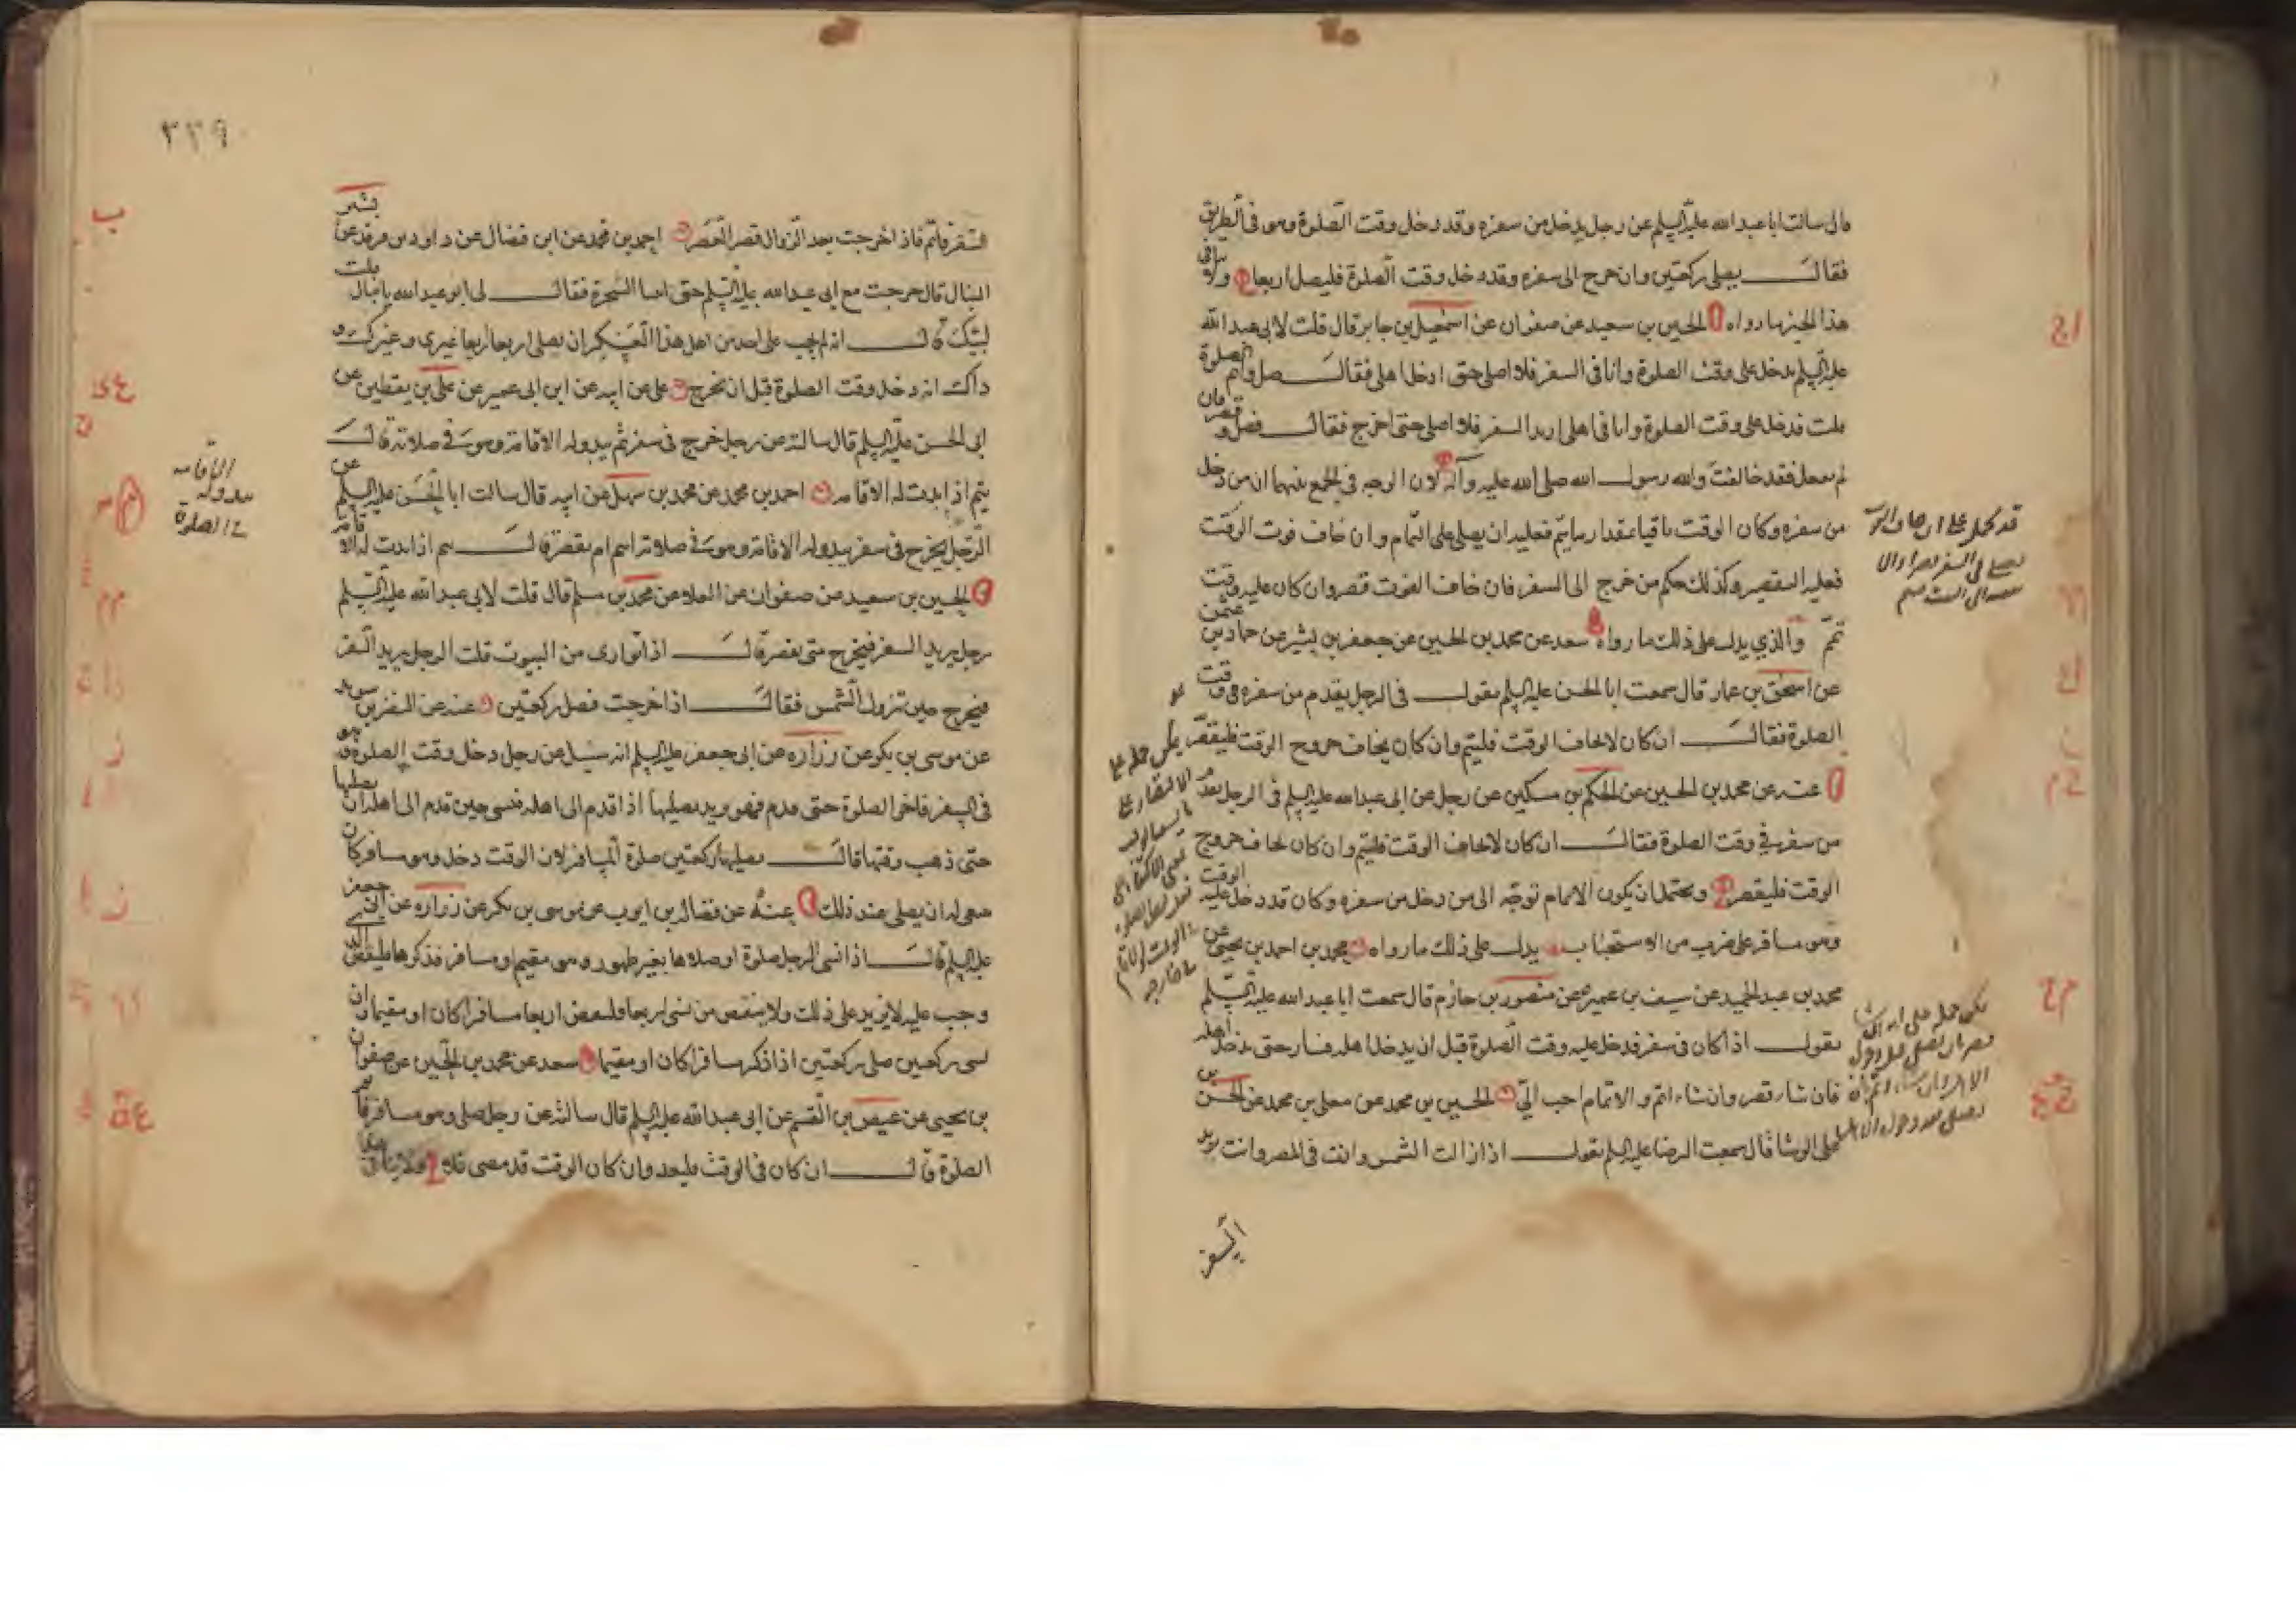 قال سالت ابا عبد الله عليه السلم عن رجل يدخل من سفره وقد دخل وقت الصلوة وهو في الطريق
فقال يصلي ركعتين وان خرج الى سفره وقد دخل وقت الصلوة فليصل اربعا ولا ينافي
هذا الخبر ما رواه الحسين بن سعيد عن صفوان عن اسمعيل بن جابر قال قلت لابي عبد الله
عليه السلم يدخل على وقت الصلوة وانا في السفر فلا اصلي حتى ادخل اهلي فقال صل واتم الصلوة
قلت فدخل على وقت الصلوة وانا في اهلي اريد السفر فلا اصلي حتى اخرج فقال فصل وقصر فان
لم تفعل فقد خالفت والله رسول الله صلى الله عليه وآله لان الوجه في الجمع بينهما ان من دخل
من سفره وكان الوقت باقيا بمقدار ما يتم فعليه ان يصلي على التمام وان خاف فوت الوقت
فعليه التقصير وكذلك حكم من خرج الى السفر فان خاف الفوت قصر وان كان عليه وقت
تمم والذي يدل على ذلك ما رواه سعد عن محمد بن الحسين عن جعفر بن بشير عن حماد بن عثمن
عن اسحق بن عمار قال سمعت ابا الحسن عليه السلم يقول في الرجل يقدم من سفره في وقت
الصلوة فقال ان كان لا يخاف الوقت فليتم وان كان يخاف خروج الوقت فليقصر
عنه عن محمد بن الحسين عن الحكم بن مسكين عن رجل عن ابي عبد الله عليه السلم في الرجل يقدم
من سفره في وقت الصلوة فقال ان كان لا يخاف الوقت فليتم وان كان يخاف خروج
الوقت فليقصر ويحتمل ان يكون الاتمام توجه الى من دخل من سفره وكان قد دخل عليه الوقت
وهو مسافر على ضرب من الاستحباب يدل على ذلك ما رواه محمد بن احمد بن يحيى عن
محمد بن عبد الحميد عن سيف بن عميرة عن منصور بن حازم قال سمعت ابا عبد الله عليه السلم
يقول اذا كان في سفر فدخل عليه وقت الصلوة قبل ان يدخل اهله فسار حتى يدخل اهله
فان شاء قصر وان شاء اتم والاتمام احب الي الحسين بن محمد عن معلى بن محمد عن الحسن بن
علي الوشا قال سمعت الرضا عليه السلم يقول اذا زالت الشمس وانت في المصر وانت تريد
السفر
٢٣٩
السفر فاتم فاذا خرجت بعد الزوال قصر العصر احمد بن محمد عن ابن فضال عن داود بن فرقد عن بشير
النبال قال خرجت مع ابي عبد الله عليه السلم حتى اتينا الشجرة فقال لي ابو عبد الله يا نبال قلت
لبيك قال انه لم يجب على احد من اهل هذا العسكر ان يصلي اربعا اربعا غيري وغيرك و
ذاك انه دخل وقت الصلوة قبل ان نخرج علي عن ابيه عن ابن ابي عمير عن علي بن يقطين عن
ابي الحسن عليه السلم قال سالته عن رجل خرج في سفر ثم يبدو له الاقامة وهو في صلاته قال
يتم اذا بدت له الاقامة احمد بن محمد عن محمد بن سهل عن ابيه قال سالت ابا الحسن عليه السلم عن
الرجل يخرج في سفر يبدو له الاقامة وهو في صلاته ايتم ام يقصر قال يتم اذا بدت له الاقامة
الحسين بن سعيد عن صفوان عن العلاء عن محمد بن مسلم قال قلت لابي عبد الله عليه السلم
رجل يريد السفر فيخرج متى يقصر قال اذا توارى من البيوت قلت الرجل يريد السفر
فيخرج حين تزول الشمس فقال اذا خرجت فصل ركعتين عنه عن النضر بن سويد
عن موسى بن بكر عن زرارة عن ابي جعفر عليه السلم انه سئل عن رجل دخل وقت الصلوة وهو
في السفر فاخر الصلوة حتى قدم فهو يريد يصليها اذا قدم الى اهله فنسي حين قدم الى اهله ان يصليها
حتى ذهب وقتها قال يصليها ركعتين صلوة المسافر لان الوقت دخل وهو مسافر كان
ينبغي له ان يصلي عند ذلك عنه عن فضالة بن ايوب عن موسى بن بكر عن زرارة عن ابي جعفر
عليه السلم قال اذا نسي الرجل صلوة او صلاها بغير طهور وهو مقيم او مسافر فذكرها فليقض الذي
وجب عليه لا يزيد على ذلك ولا ينقص من نسي اربعا فليقض اربعا مسافرا كان او مقيما وان
نسي ركعتين صلى ركعتين اذا ذكر مسافرا كان او مقيما سعد عن محمد بن الحسين عن صفوان
بن يحيى عن عيص بن القسم عن ابي عبد الله عليه السلم قال سالته عن رجل صلى وهو مسافر فاتم
الصلوة قال ان كان في الوقت فليعد وان كان الوقت قد مضى فلا ولا ينافي
الاقامه
يبدو له
في الصلوة